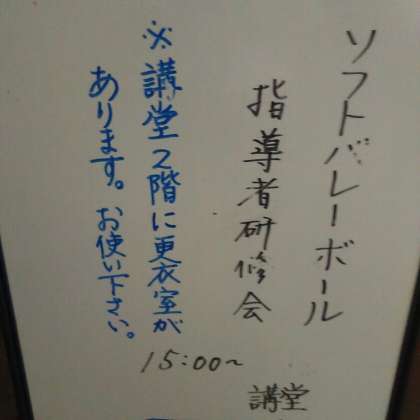 ソフトバレーボール
指導者研修会
※講堂2階に更衣室が
あります。お使い下さい。
15:00~
講堂